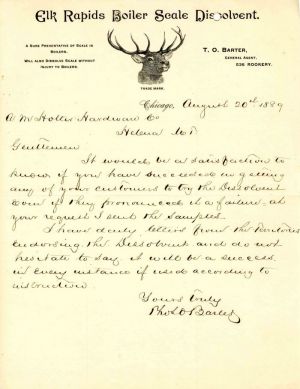 Elk Rapids Boiler Scale Dissolvent.
A SURE PREVENTATIVE OF SCALE IN
BOILERS.
WILL ALSO DISSOLVE SCALE WITHOUT
INJURY TO BOILERS.
T. O. BARTER,
GENERAL AGENT,
636 ROOKERY.
TRADE MARK.
Chicago, August 20th 1889
A M Holter Hardware Co
Helena M.T
Gentlemen
It would be a satisfaction to
know if you have succeeded in getting
any of your customers to try the Dissolvent
Even if they pronounced it a failure, at
your request I sent the samples
I have letters from the Territories
endorsing the Dissolvent and do not
hesitate to say it will be a success
in every instance if used according to
instructions
Yours Truly
Barter